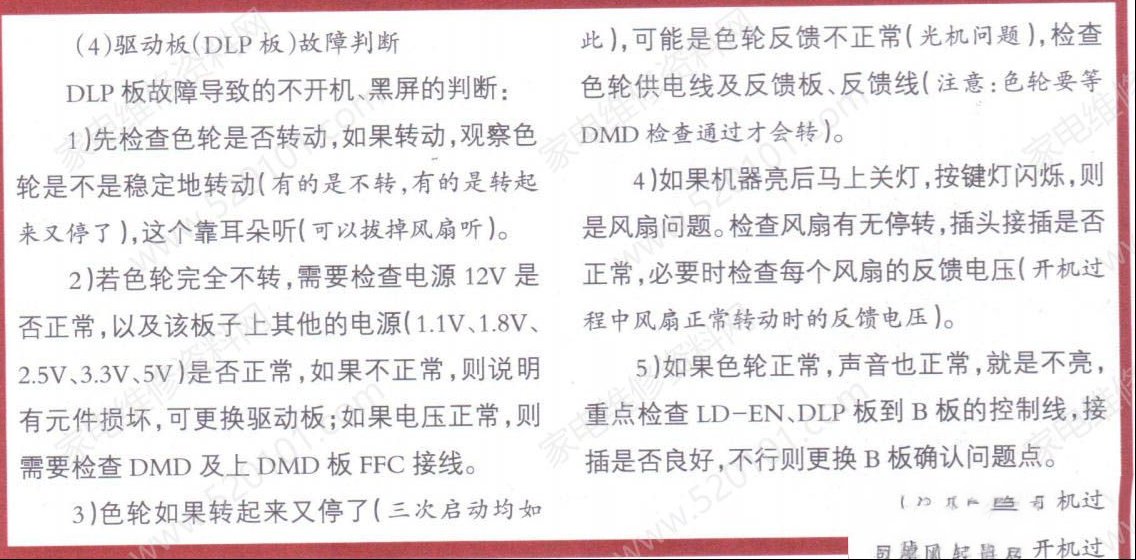 (4)驱动板(DLP 板)故障判断
DLP 板故障导致的不开机、黑屏的判断：
1)先检查色轮是否转动,如果转动,观察色
轮是不是稳定地转动(有的是不转,有的是转起
来又停了),这个靠耳朵听(可以拔掉风扇听)。
2)若色轮完全不转,需要检查电源 12V 是
否正常,以及该板子上其他的电源(1.1V、1.8V、
2.5V、3.3V、5V)是否正常,如果不正常,则说明
有元件损坏,可更换驱动板;如果电压正常,则
需要检查 DMD 及上 DMD 板 FFC 接线。
3)色轮如果转起来又停了(三次启动均如
此),可能是色轮反馈不正常(光机问题),检查
色轮供电线及反馈板、反馈线(注意:色轮要等
DMD 检查通过才会转)。
4)如果机器亮后马上关灯,按键灯闪烁,则
是风扇问题。检查风扇有无停转,插头接插是否
正常,必要时检查每个风扇的反馈电压(开机过
程中风扇正常转动时的反馈电压)。
5)如果色轮正常,声音也正常,就是不亮,
重点检查 LD-EN、DLP 板到 B 板的控制线,接
插是否良好,不行则更换 B 板确认问题点。
机过
开机过
家电维修资料网
www.520101.com